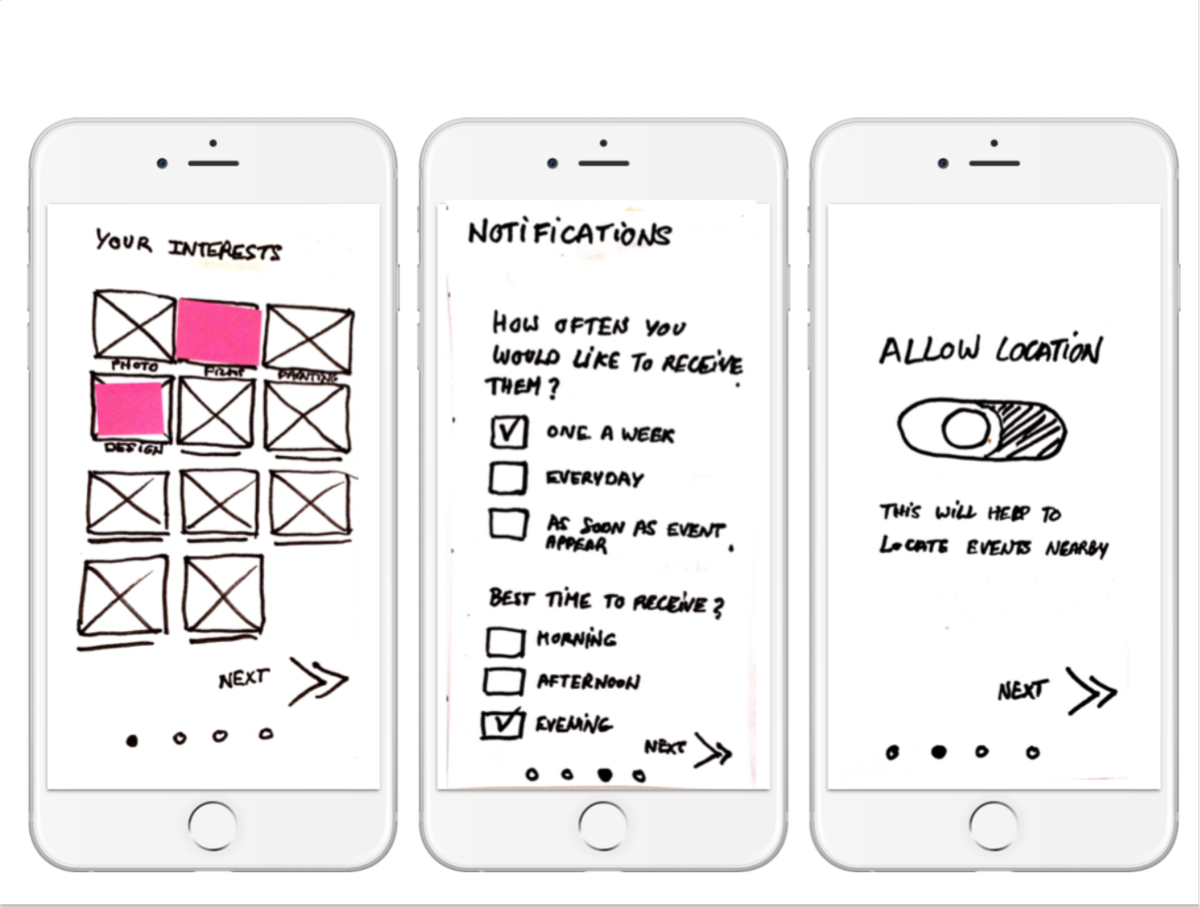 YOUR INTERESTS
PHOTO
FILMS
PAINTING
DESIGN
NEXT
NOTIFICATIONS
HOW OFTEN YOU
WOULD LIKE TO RECEIVE
THEM?
ONE A WEEK
EVERYDAY
AS SOON AS EVENT
APPEAR
BEST TIME TO RECEIVE?
MORNING
AFTERNOON
EVENING
NEXT
ALLOW LOCATION
THIS WILL HELP TO
LOCATE EVENTS NEARBY
NEXT